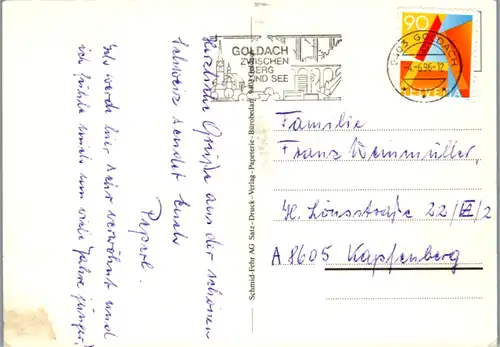 Herzliche Grüße aus der schönen
Schweiz sendet Euch
Papierl.
Ich werde hier sehr verwöhnt und
ich fühle mich um viele Jahre jünger!
Schmid-Fehr AG Satz - Druck - Verlag - Papeterie - Bürobedarf
GOLDACH
ZWISCHEN
BERG
UND SEE
9403 GOLDACH
-6.96-12
90
HELVETIA
Familie
Franz Weinmüller
H. Lönsstraße 22/VI/2
A 8605 Kapfenberg